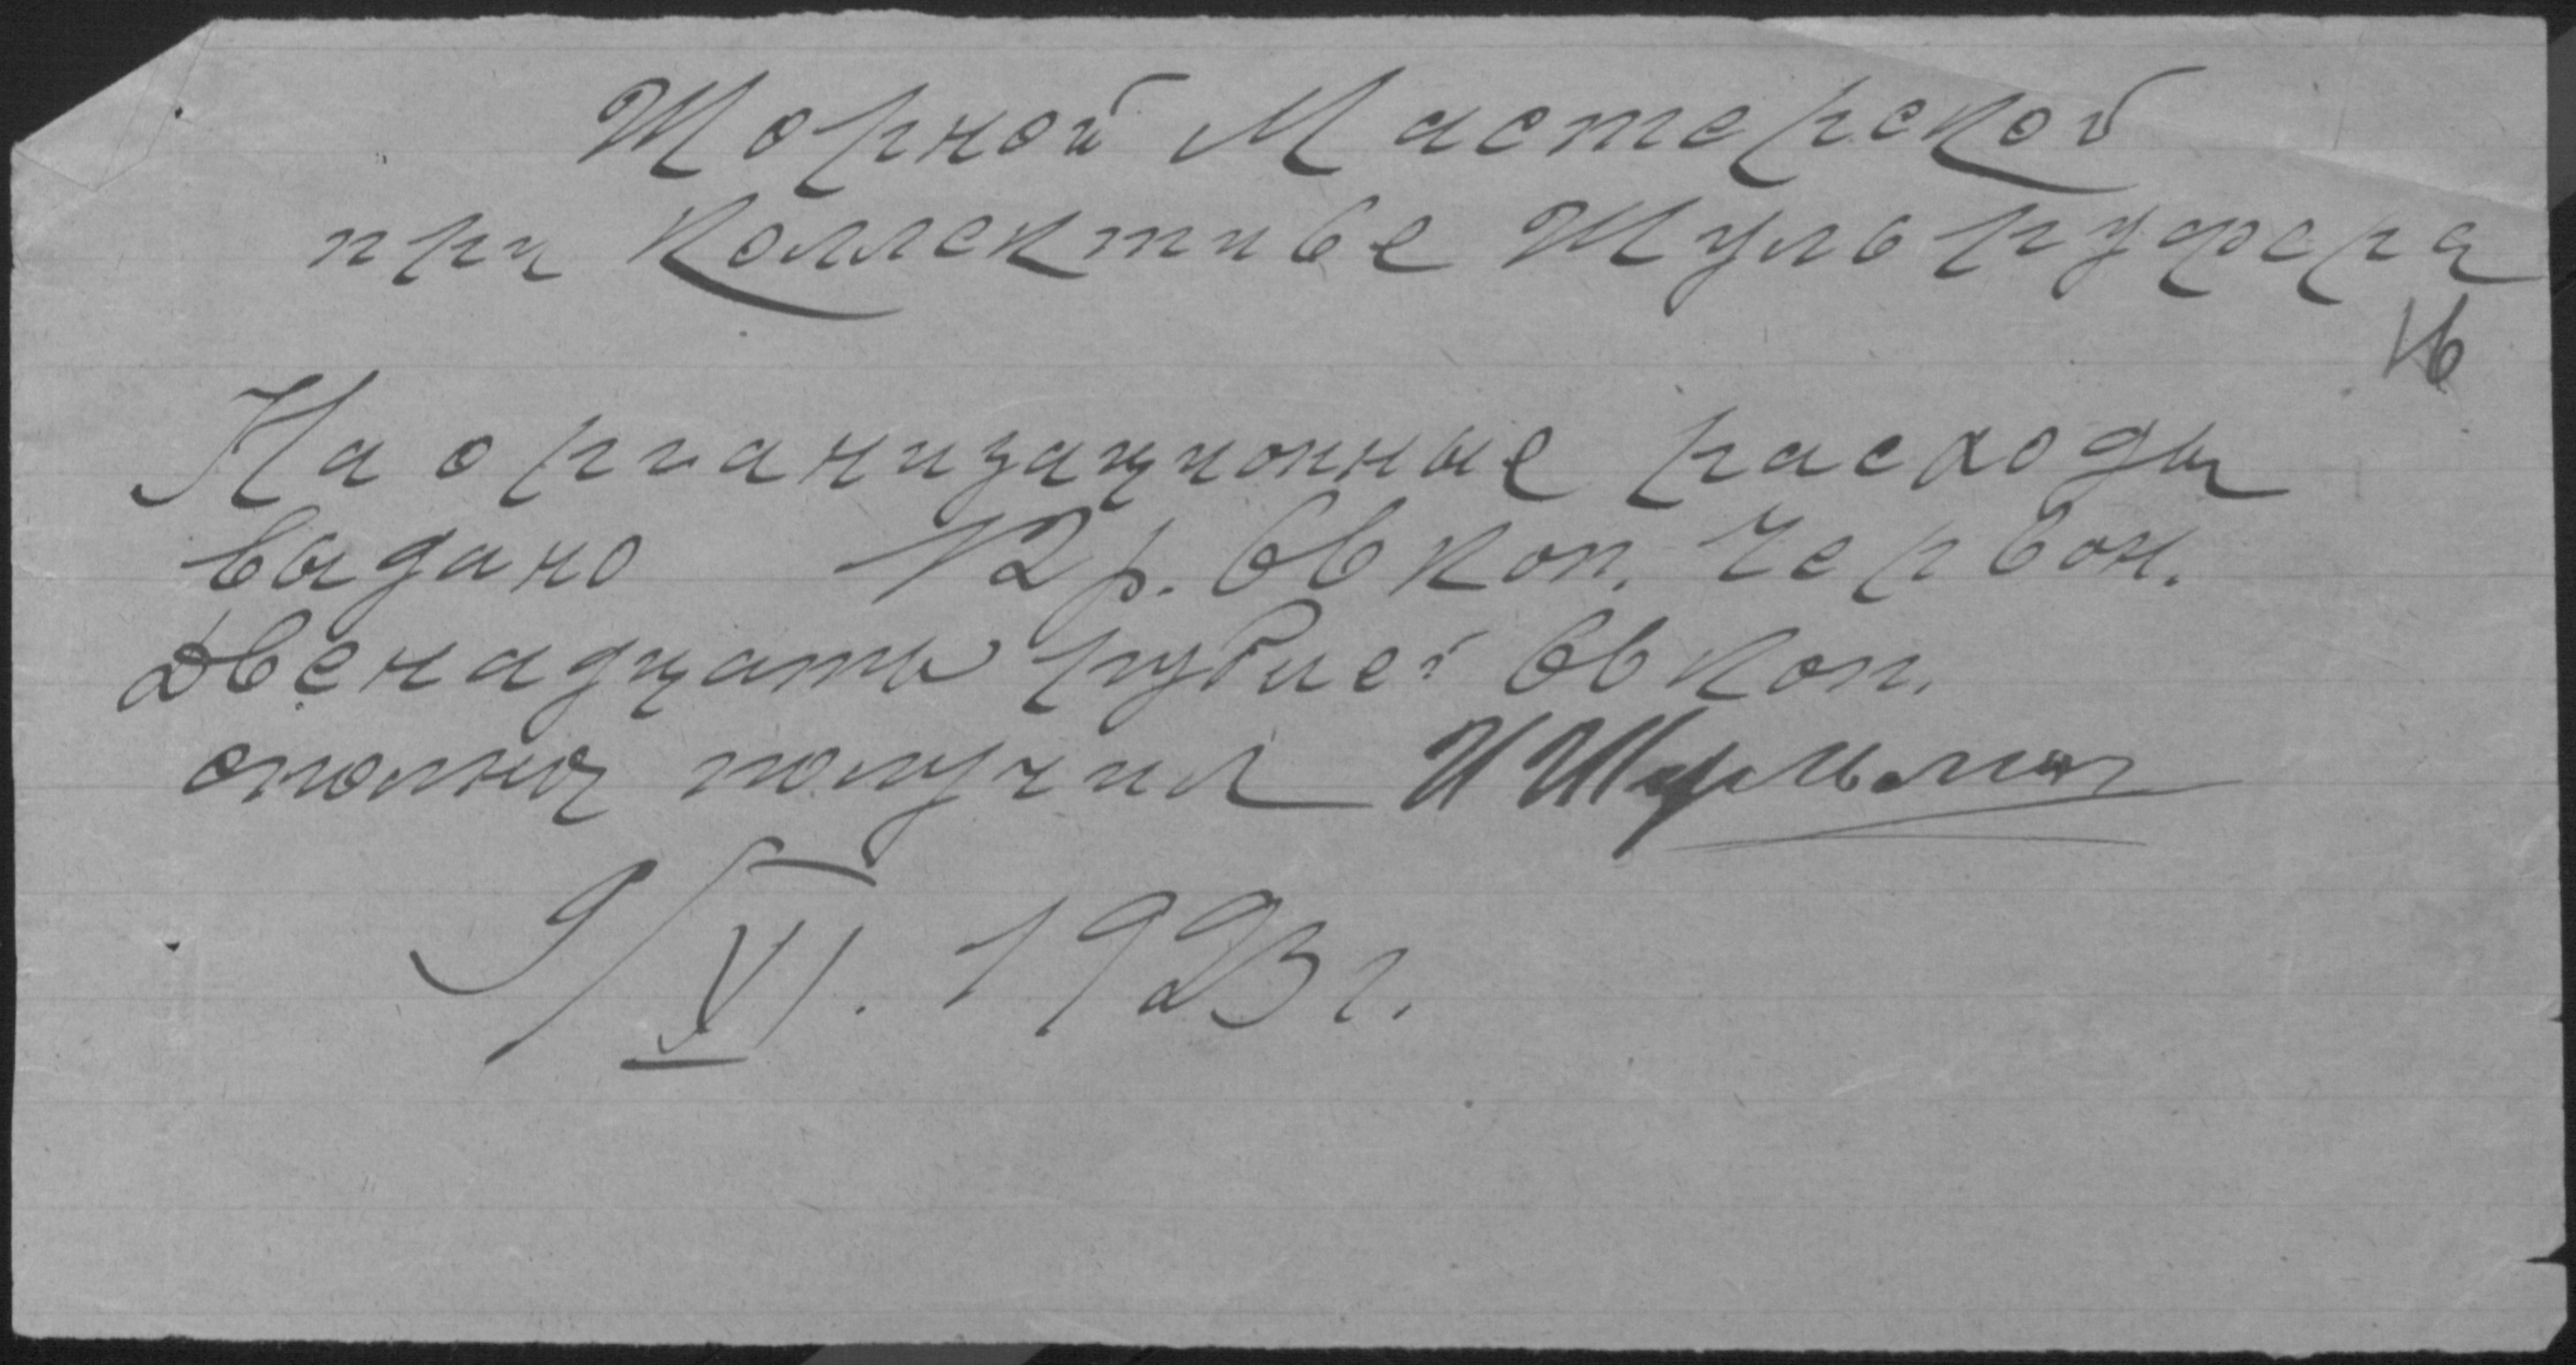 Шорной Мастерской
при Коллективе Шульруфера
16
На организационные расходы
выдано 12 р. 66 коп. Червон.
Двенадцать рублей 66 коп.
сполна получил И Шульман
9/VI. 1923 г.